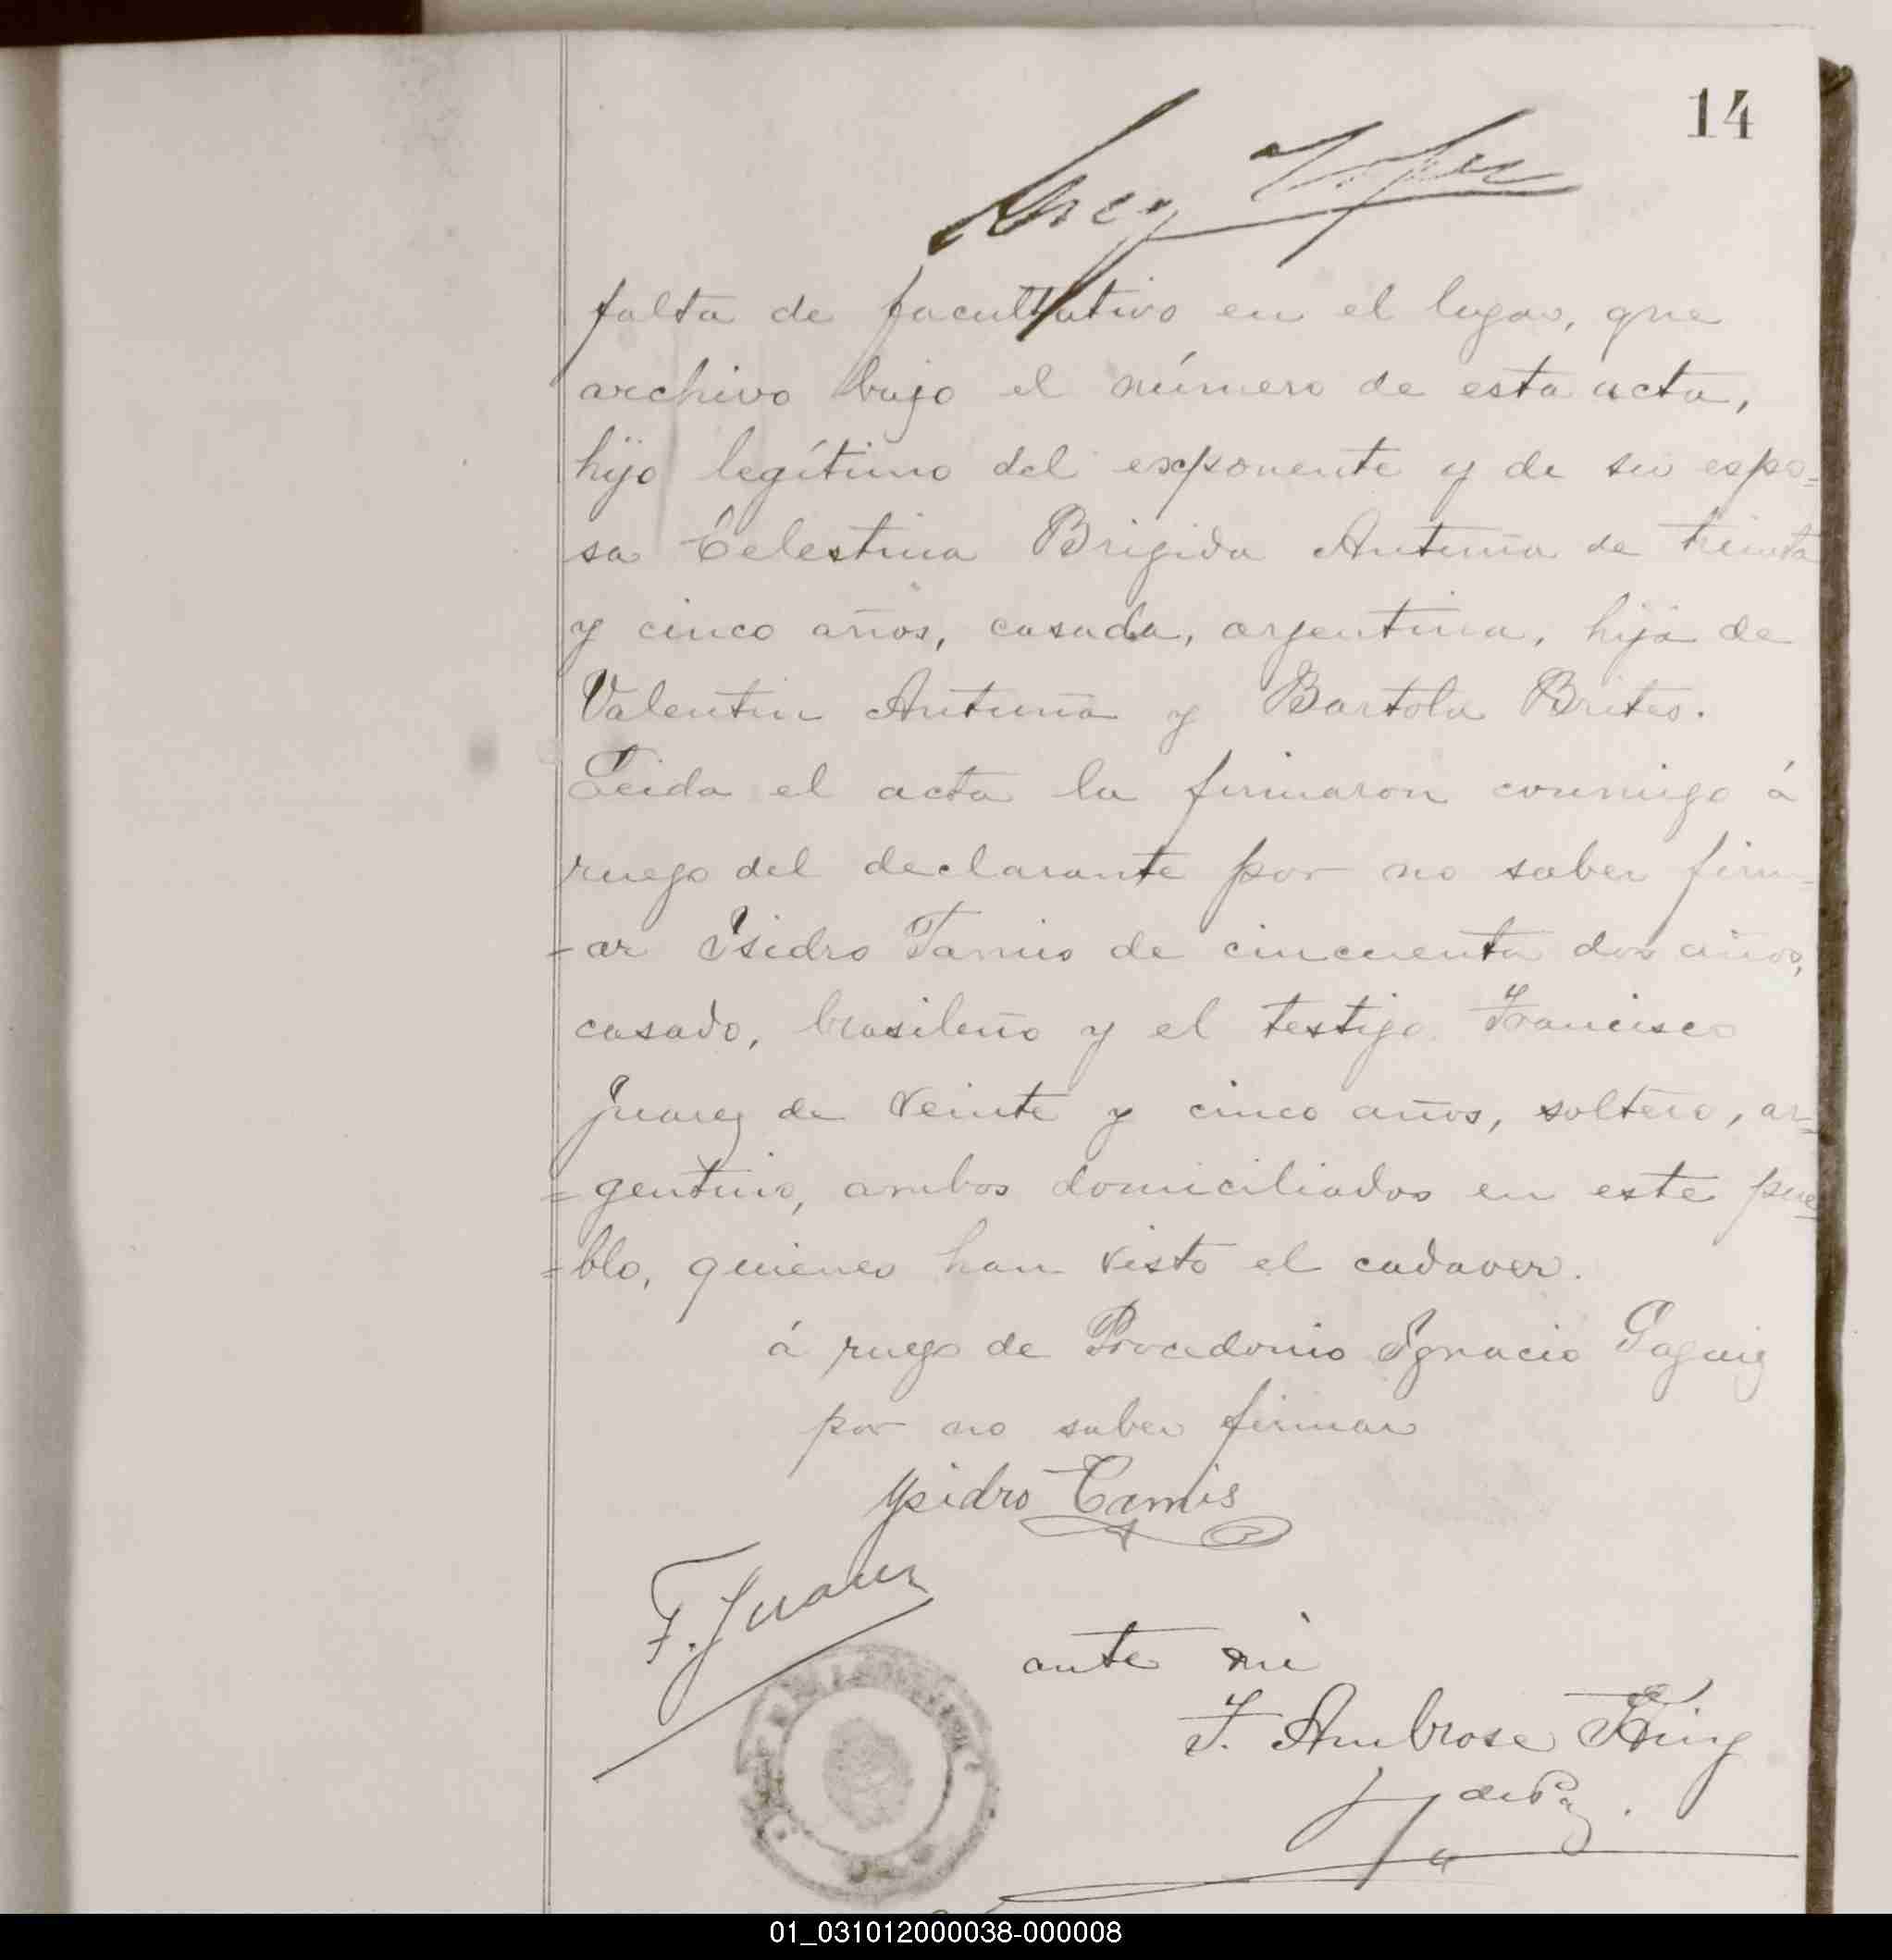 14
falta de facultativo en el lugar, que
archivo bajo el número de esta acta,
hijo legítimo del exponente y de su espo=
sa Celestina Brigida Antuña de treinta
y cinco años, casada, argentina, hija de
Valentin Antuña y Bartola Brites.
Leida el acta la firmaron conmigo á
ruego del declarante por no saber firm-
-ar Isidro Tamis de cincuenta dos años,
casado, brasileño y el testigo Francisco
Juarez de veinte y cinco años, soltero, ar=
=gentino, ambos domiciliados en este pue=
=blo, quienes han visto el cadaver.
á ruego de Ignacio
por no saber firmar
Ysidro Tamis
F. Juarez
ante mi
F. Ambrose King
J de Paz.
01_031012000038-000008